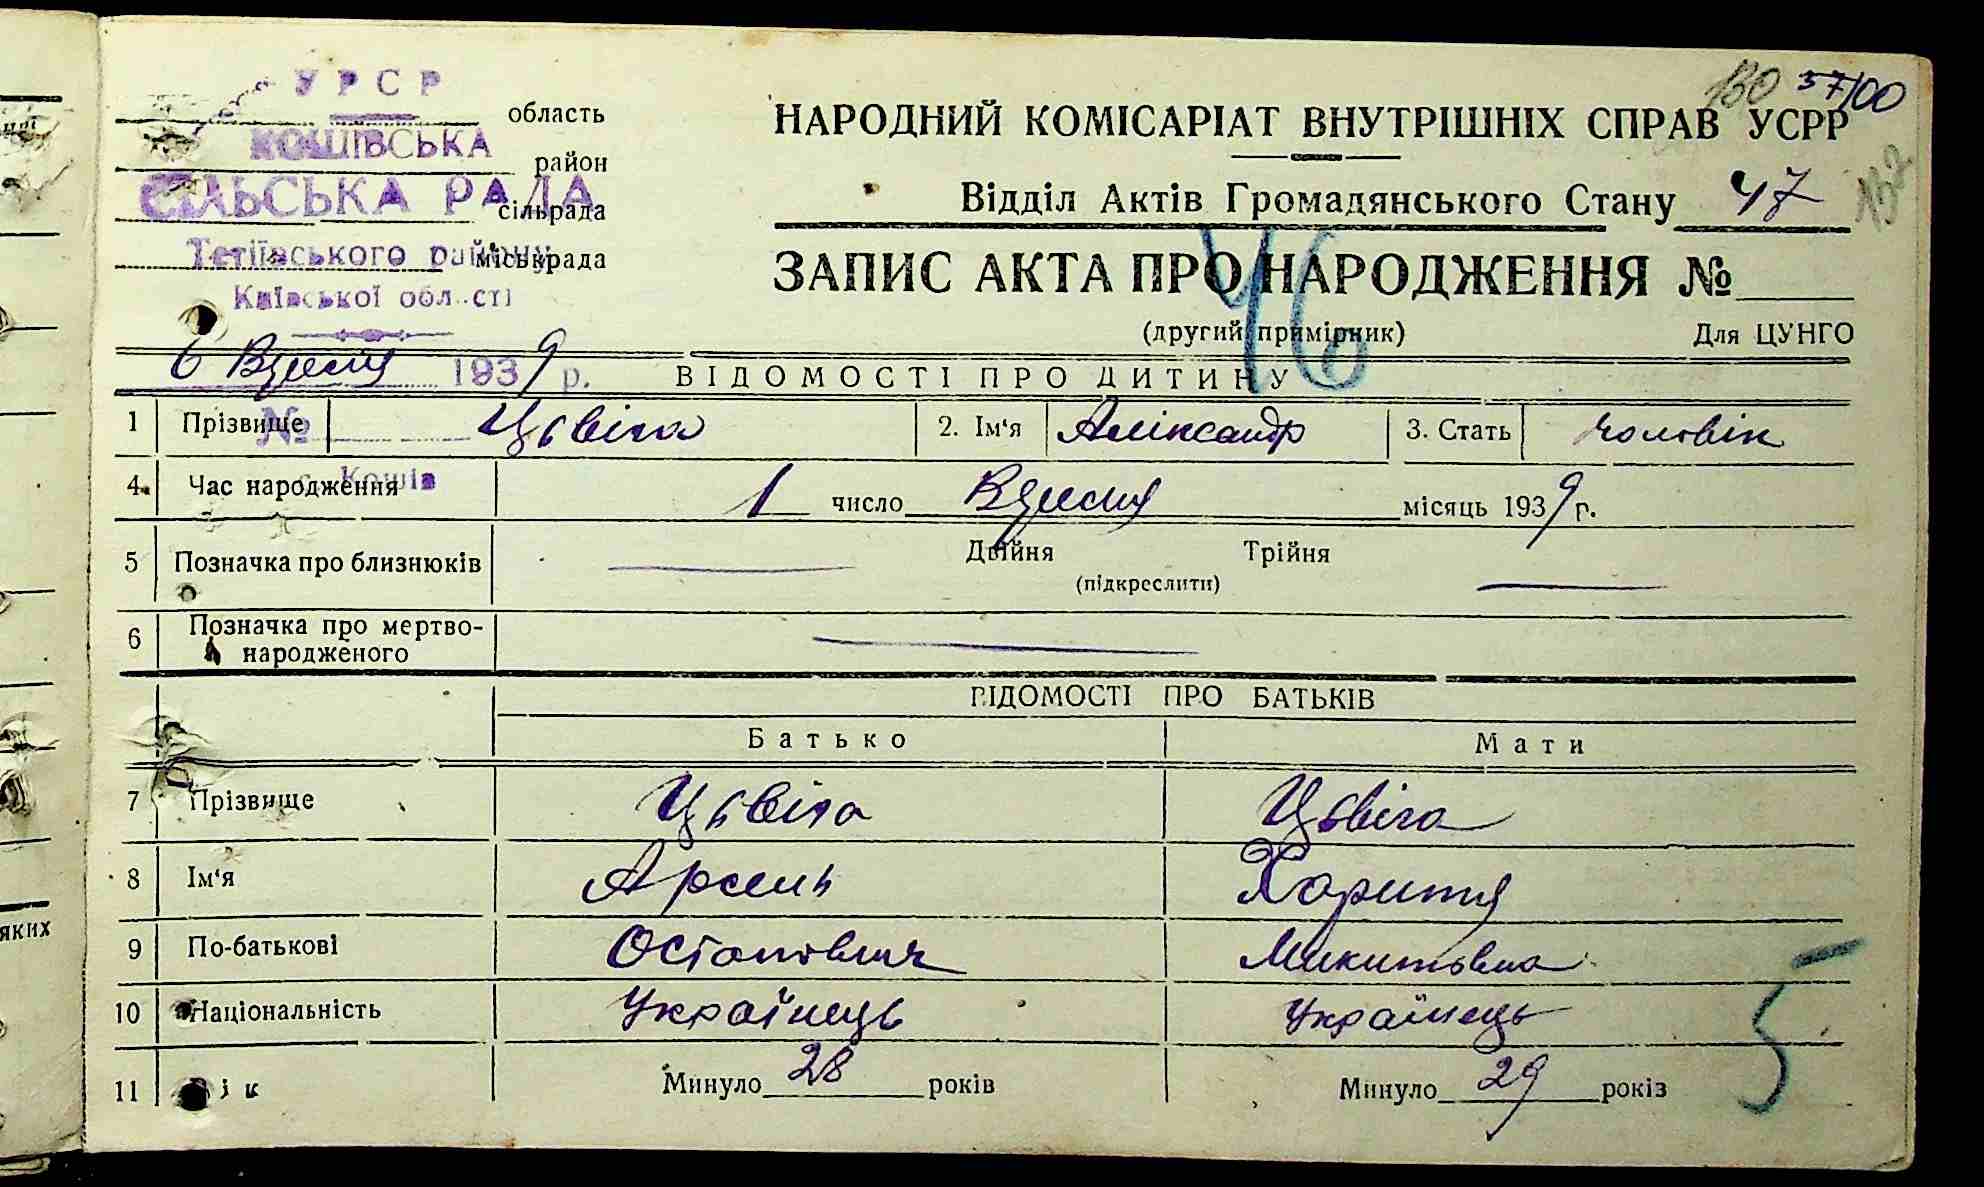 УРСР
область
КОШІВСЬКА
район
СІЛЬСЬКА РАДА
сільрада
Тетіївського району
міськрада
Київської області
6 Вересня 1939 р.
№
с. Кошів
130 57/100
132
НАРОДНИЙ КОМІСАРІАТ ВНУТРІШНІХ СПРАВ УСРР
Відділ Актів Громадянського Стану 47
ЗАПИС АКТА ПРО НАРОДЖЕННЯ №
46
(другий примірник) Для ЦУНГО
ВІДОМОСТІ ПРО ДИТИНУ
1 Прізвище Цьвіга 2. Ім'я Аліксандр 3. Стать чоловік
4. Час народження 1 число Вересня місяць 1939 р.
5 Позначка про близнюків Двійня Трійня
(підкреслити)
6 Позначка про мертво-
народженого
ВІДОМОСТІ ПРО БАТЬКІВ
Батько Мати
7 Прізвище Цьвіга Цьвіга
8 Ім'я Арсень Харитя
9 По-батькові Остапович Микитовна
10 Національність Українець Українець
11 Вік Минуло 28 років Минуло 29 років
5
яких